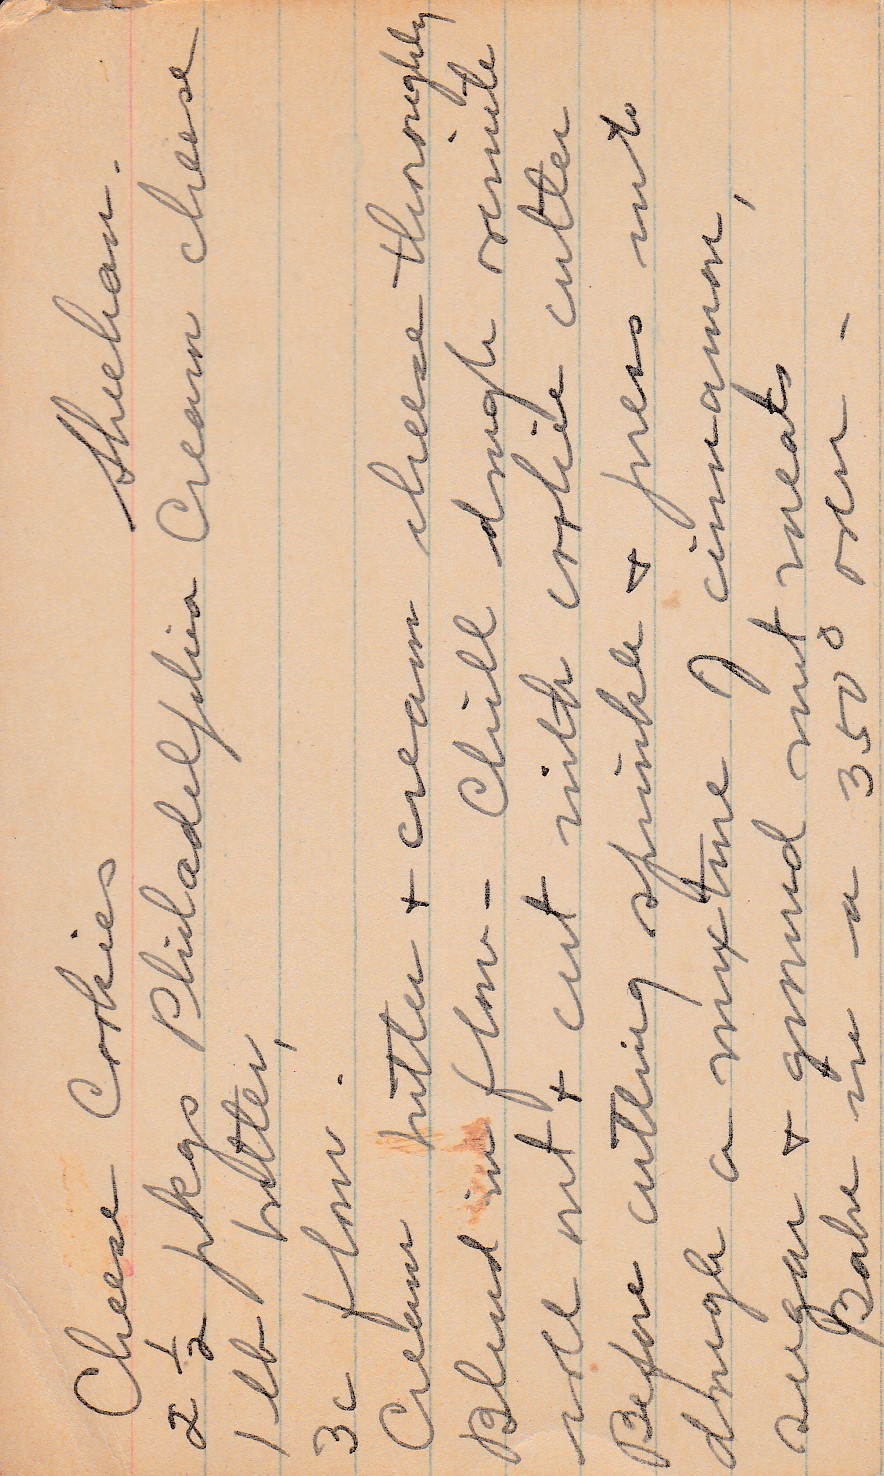 Cheese Cookies Sheehan.
2 1/2 pkgs Philadelphia Cream cheese
1 lb butter,
3c flour.
Cream butter + cream cheese thoroughly
Blend in flour - Chill dough overnite
roll out + cut with cookie cutter
Before cutting sprinkle + press into
dough a mixture of cinnamon,
sugar + ground nut meats
Bake in a 350° oven -